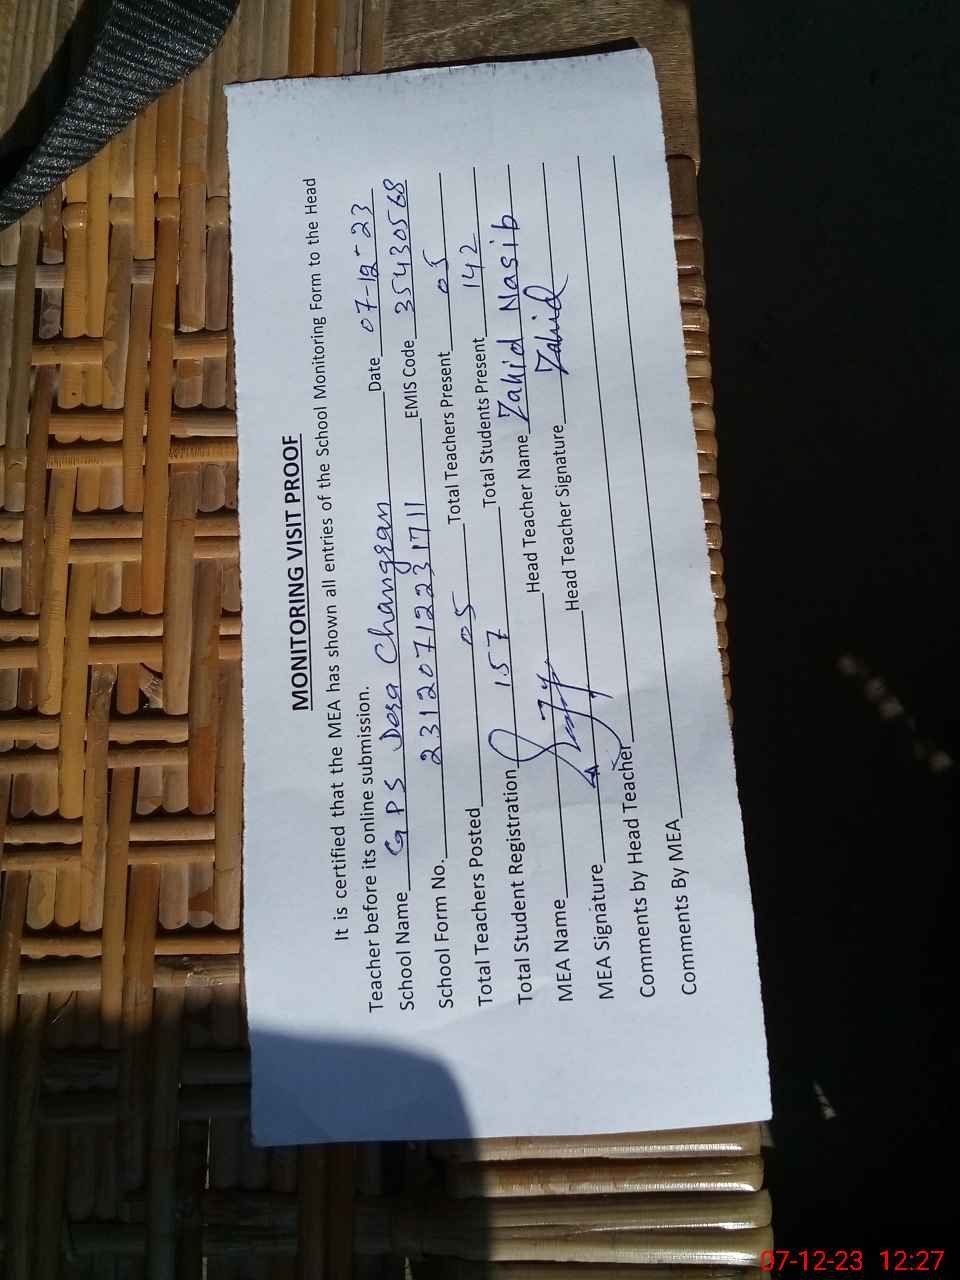 MONITORING VISIT PROOF
It is certified that the MEA has shown all entries of the School Monitoring Form to the Head
Teacher before its online submission.
School Name GPS Dosa Changran Date 07-12-23
School Form No. 23120712231711 EMIS Code 35430568
Total Teachers Posted 05 Total Teachers Present 05
Total Student Registration 157 Total Students Present 142
MEA Name Head Teacher Name Zahid Nasib
MEA Signature Head Teacher Signature Zahid
Comments by Head Teacher
Comments By MEA
07-12-23 12:27